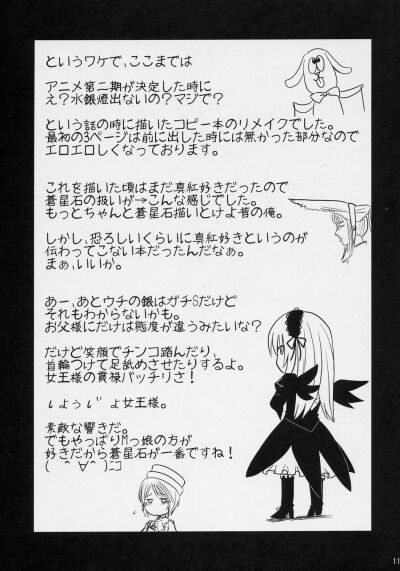 というワケで、ここまでは
アニメ第二期が決定した時に
え?水銀燈出ないの?マジで?
という話の時に描いたコピー本のリメイクでした。
最初の3ページは前に出した時には無かった部分なので
エロエロしくなっております。
これを描いた頃はまだ真紅好きだったので
蒼星石の扱いが→こんな感じでした。
もっとちゃんと蒼星石描いとけよ昔の俺。
しかし、恐ろしいくらいに真紅好きというのが
伝わってこない本だったんだなぁ。
まぁ、いいか。
あー、あとウチの銀はガチSだけど
それもわからないかも。
お父様にだけは態度が違うみたいな?
だけど笑顔でチンコ踏んだり、
首輪つけて足舐めさせたりするよ。
女王様の貫禄バッチリさ!
しょうじょ女王様。
素敵な響きだ。
でもやっぱりMっ娘の方が
好きだから蒼星石が一番ですね!
( ^ ∀^ )ニコ
11